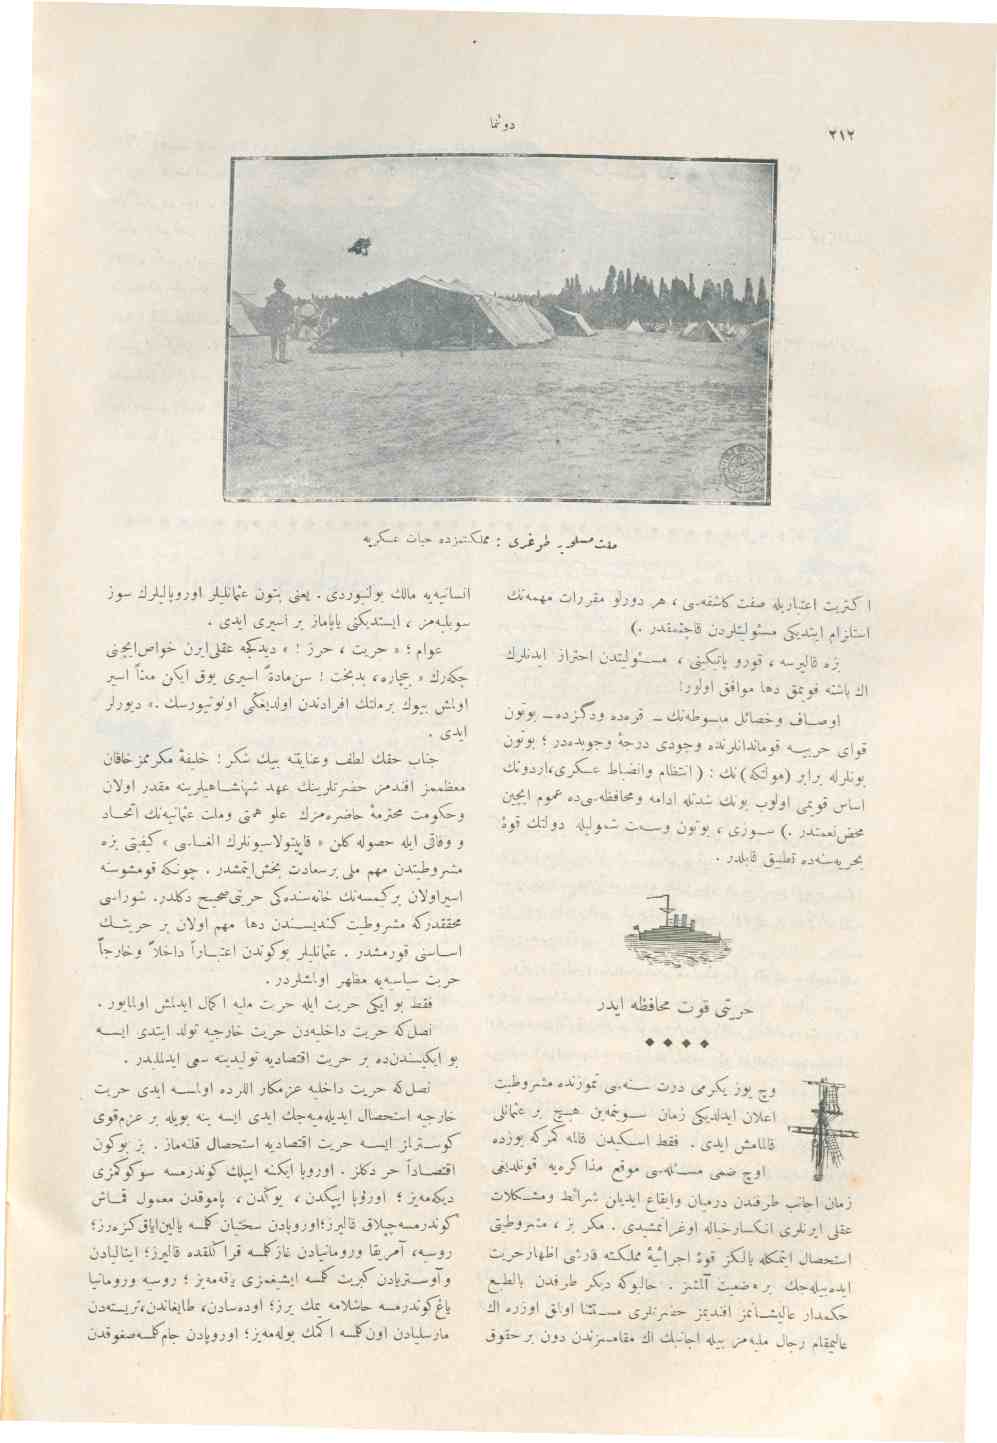 دونما
٢١٢
ملت مسلحه یه طوغری : مملکتمزده حیات عسکریه
اکثریت اعتباریله صفت کاشفه‌سی ، هر دورلو مقررات مهمه‌نك
استلزام ایتدیکی مسئولیتلردن قاچنمقدر .)
بزه قالیرسه ، قورو یاتیکینی ، مسئولیتدن احتراز ایدنلرك
اك باشنه قویمق دها موافق اولور!
اوصاف وخصائل مبسوطه‌نك ـ قره‌ده ودکزده ـ بوتون
قوای حربیه قوماندانلرنده وجودی درجهٔ وجوبده‌در ؛ بوتون
بونلرله برابر (مولتکه) نك : ( انتظام وانضباط عسکری،اردونك
اساس قویمی اولوب بونك شدتله ادامه ومحافظه‌سی‌ده عموم ایچین
محض‌نعمتدر .) سوزی ، بوتون وسعت شمولیله دولتك قوهٔ
بحریه‌سنه‌ده تطبیق قابلدر .
حریتی قوت محافظه ایدر
وچ یوز یکرمی درت سنه‌سی تموزنده مشروطیت
اعلان ایدلدیکی زمان سوینمه‌ین هیچ بر عثمانلی
قالمامش ایدی . فقط اسکیدن قالمه کمرکه یوزده
اوچ ضمی مسئله‌سی موقع مذاکره‌یه قونلدیغی
زمان اجانب طرفندن درمیان وایقاع ایدیلن شرائط ومشکلات
عقلی ایرنلری انکسارخیاله اوغراتمشیدی . مکر بز ، مشروطیتی
استحصال ایتمکله یالکز قوهٔ اجرائیهٔ مملکته قارشی اظهارحریت
ایده‌بیله‌جك بر وضعیت آلمشز . حالبوکه دیکر طرفدن بالطبع
حکمدار عالیشانمز افندیمز حضرتلری مستثنا اولمق اوزره اك
عالیمقام رجال ملیه‌مز بیله اجانبك اك مقامسزندن دون بر حقوق
انسانیه‌یه مالك بولنیوردی . یعنی بتون عثمانلیلر اوروپالیلرك سوز
سویلیه‌مز ، ایستدیکنی یاپاماز بر اسیری ایدی .
عوام ؛ « حریت ، حرز ! » دیدکجه عقلی‌ایرن خواص‌ایچنی
چکه‌رك « بیچاره، بدبخت ! سن‌مادةً اسیری یوق ایکن معناً اسیر
اولمش بیوك برملتك افرادندن اولدیغکی اونوتیورسك .» دیورلر
ایدی .
جناب حقك لطف وعنایتنه بیك شکر ! خلیفهٔ مکرممزخاقان
معظممز افندمز حضرتلرینك عهد شهنشاهیلرینه مقدر اولان
وحکومت محترمهٔ حاضره‌مزك علو همتی وملت عثمانیه‌نك اتحاد
و وفاقی ایله حصوله کلن « قاپیتولاسیونلرك الغاسی » کیفیتی بزه
مشروطیتدن مهم ملی برسعادت بخش‌ایتمشدر . چونکه قومشوسنه
اسیراولان برکیمسه‌نك خانه‌سنده‌کی حریتی‌صحیح دکلدر. شوراسی
محققدرکه مشروطیت کندیسندن دها مهم اولان بر حریتك
اساسنی قورمشدر . عثمانلیلر بوکوندن اعتباراً داخلاً وخارجاً
حریت سیاسیه‌یه مظهر اولمشلردر .
فقط بو ایکی حریت ایله حریت ملیه اکمال ایدلمش اولمایور .
نصل‌که حریت داخلیه‌دن حریت خارجیه تولد ایتدی ایسه
بو ایکیسندن‌ده بر حریت اقتصادیه تولیدینه سعی ایدلملیدر .
نصل‌که حریت داخلیه عزمکار اللرده اولمسه ایدی حریت
خارجیه استحصال ایدیله‌میه‌جك ایدی ایسه ینه بویله بر عزم‌قوی
کوسترلمز ایسه حریت اقتصادیه استحصال قلنه‌ماز . بز بوکون
اقتصاداً حر دکلز . اوروپا ایکنه ایپلك کوندرمسه سوکوکمزی
دیکه‌میز ؛ اوروپا ایپکدن ، یوکدن ، پاموقدن معمول قماش
کوندرمسه‌چپلاق قالیرز؛اوروپادن سختیان کلمسه یالین‌ایاق‌کزه‌رز؛
روسیه، آمریقا ورومانیادن غازکلمسه قراکلقده قالیرز؛ ایتالیادن
وآوستریادن کبریت کلمسه ایشیغمزی یاقه‌مه‌یز ؛ روسیه ورومانیا
یاغ‌کوندرمسه حاشلامه یمك یرز؛ اوده‌سادن، طایغاندن،تریسته‌دن
مارسلیادن اون‌کلمسه اکمك بوله‌مه‌یز؛ اوروپادن جام‌کلمسه‌صغوقدن